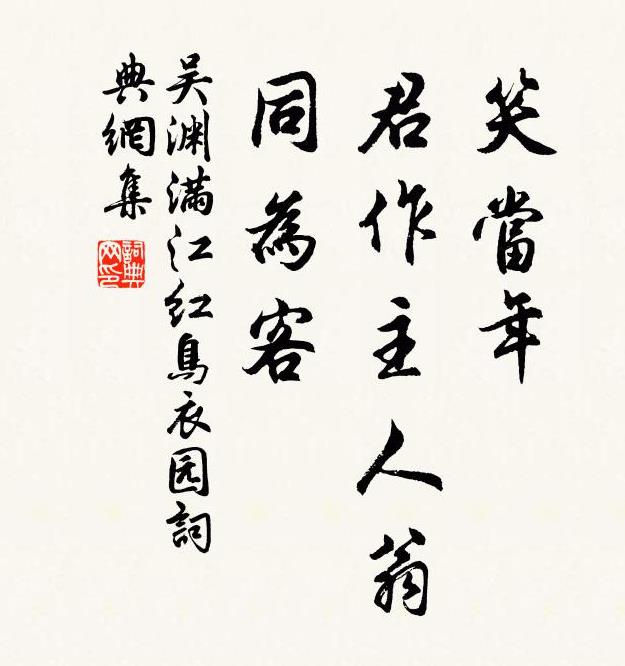 笑當年
君作主人翁
同為客
吴渊满江红鳥衣园詞
典網集
詞典
网印